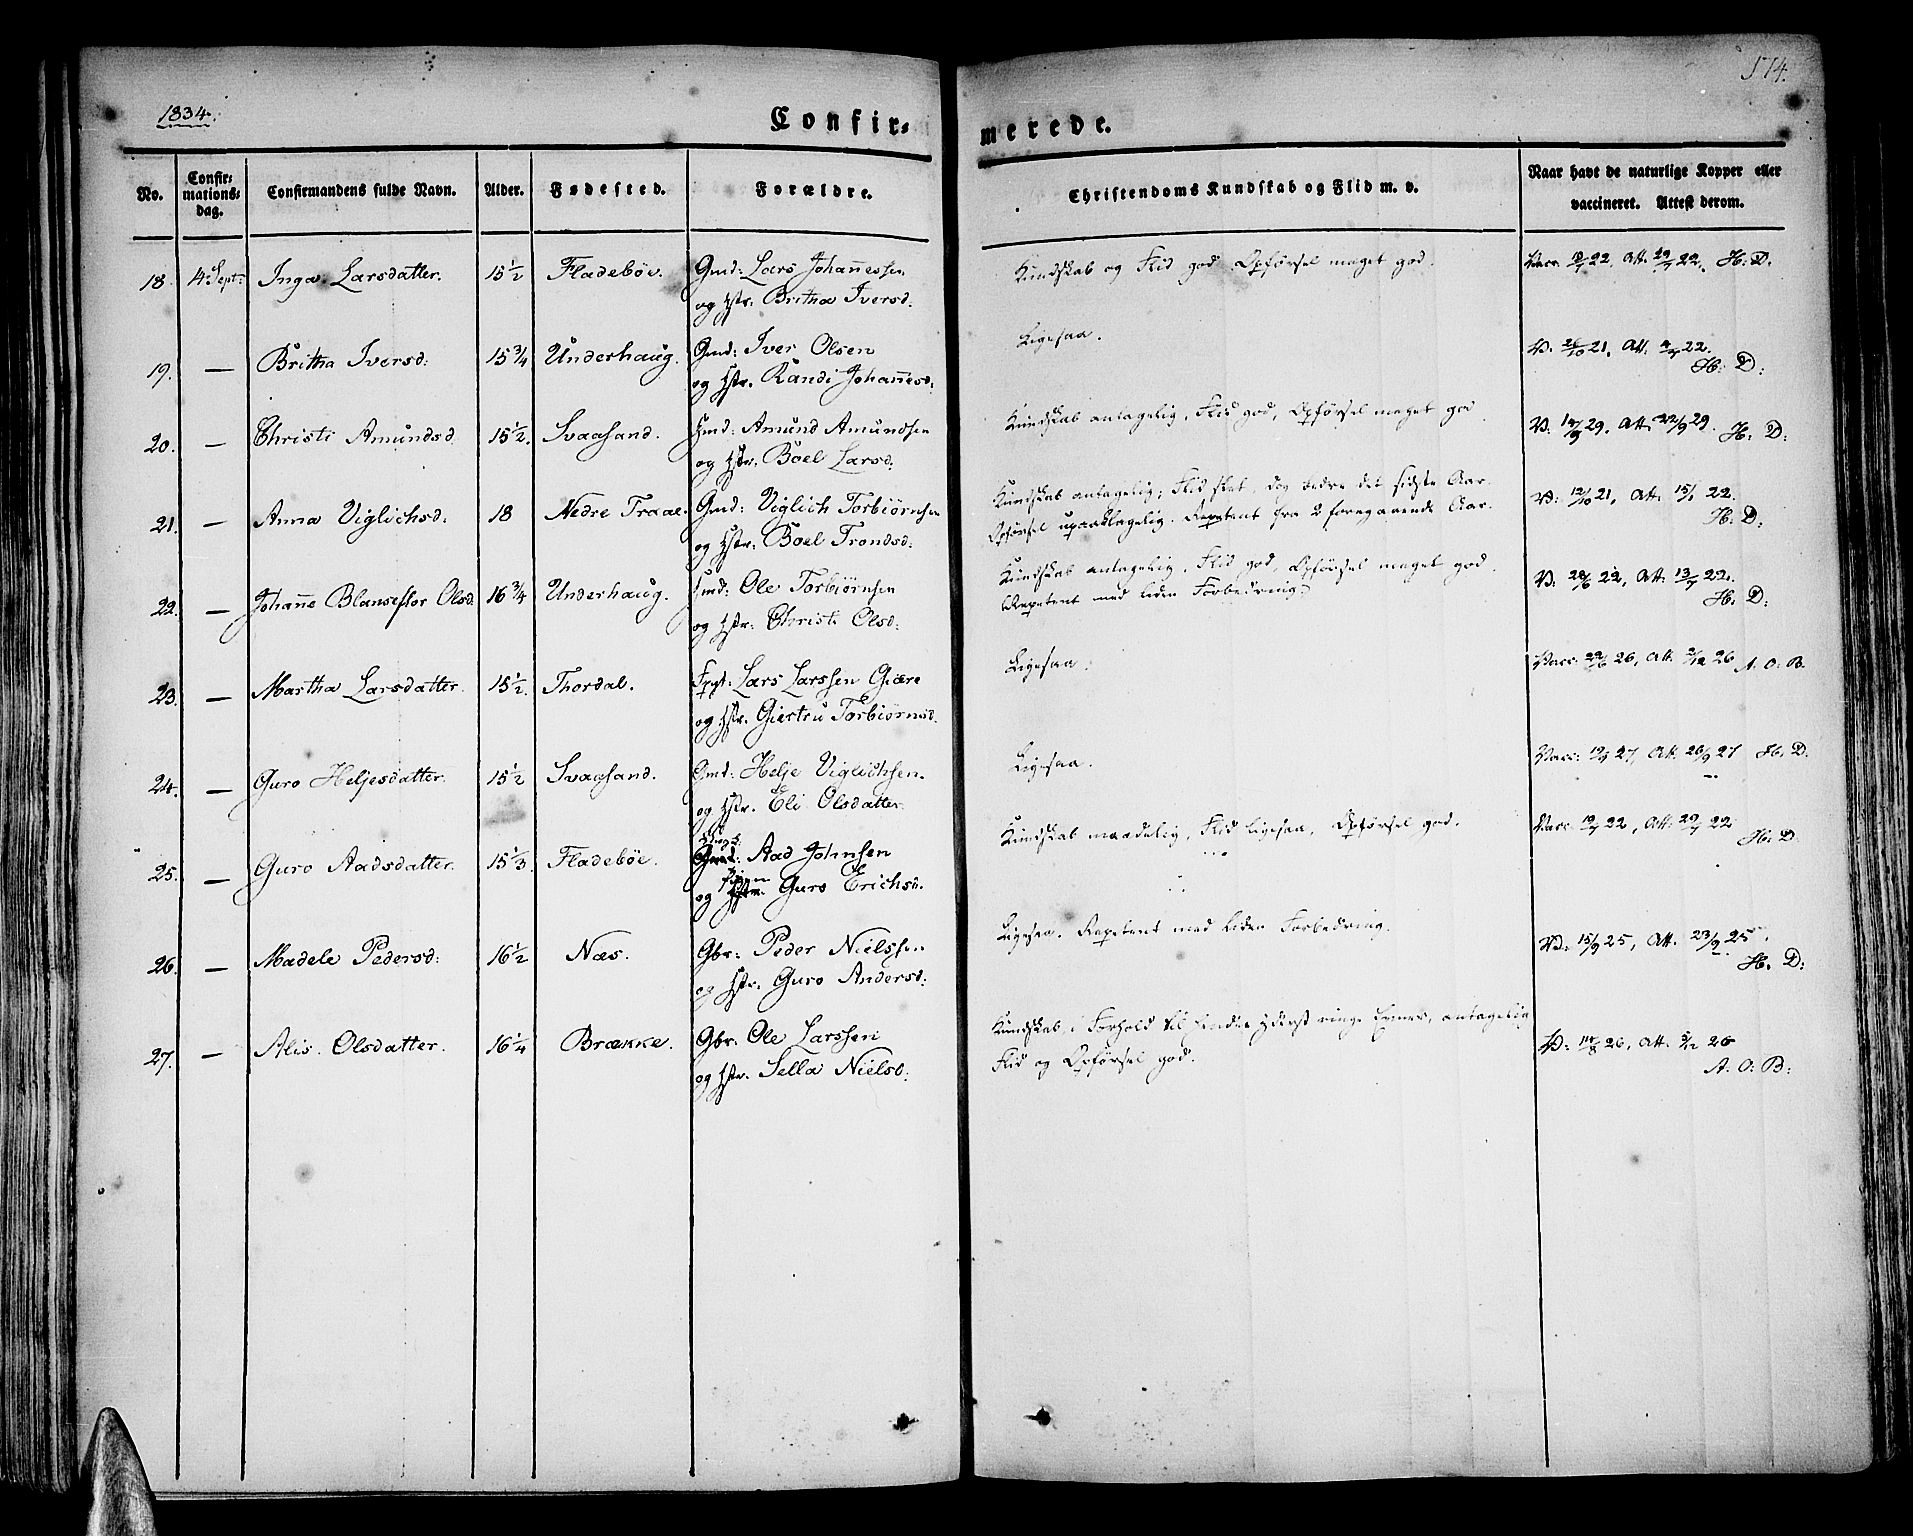 174.
1834.
Confir=
merede.
No.
Confir=
mations=
dag.
Confirmandens fulde Navn.
Alder.
Fødested.
Forældre.
Christendoms Kundskab og Flid m. v.
Naar havt de naturlige Kopper eller
vaccineret. Attest derom.
18. 14 Sept: Inga Larsdatter. 15½ Fladebøe. Gmd: Lars Johannessen
og Hstr: Britha Iversd:
Kundskab og Flid god. Opførsel meget god.
Vacc: 22, Att. 22. H: D.
19. — Britha Iversd: 15¾ Underhaug. Gmd: Iver Olsen
og Hstr. Randi Johannesd:
Ligesaa.
V: 26/10 21, Att: 22.
H: D:
20. — Christi Amundsd. 15½. Svaasand. Hmd: Amund Amundsen
og Hstr: Boel Larsd:
Kundskab antagelig, Flid god, Opførsel meget god
V: 29. Att: 22/9 29. H: D:
21. — Anna Viglichsd: 18 Nedre Traae. Gmd: Viglich Torbiørnsen
og Hstr: Boel Trondsd:
Kundskab antagelig; Flid slet, dog bedre det sidste Aar.
Opførsel upaaklagelig. Repetent fra 2 foregaaende Aar.
V: 12/10 21, Att: 15/1 22.
H: D:
22. — Johanne Blanseflor Olsd: 16¾ Underhaug. Hmd: Ole Torbiørnsen
og Hstr: Christi Olsd:
Kundskab antagelig, Flid god, Opførsel meget god.
Repetent med liden Forbedring.
V: 22, Att: 13/7 22.
H: D:
23. — Martha Larsdatter. 15½. Thordal. Lars Larssen Giære
og Hstr. Giertru Torbiørnsd.
Ligesaa.
Vacc: 26, Att. 26 A. O: B.
24. — Guro Heljesdatter. 15½ Svaasand. Gmd: Helje Viglichsen.
og Hstr. Eli Olsdatter.
Ligesaa.
Vacc: 27, Att. 27 H: D.
25. — Guro Aadsdatter. 15⅓. Fladebøe. Aad Johnsen
og Pigen Guro Erichsd.
Kundskab maadelig, Flid ligesaa, Opførsel god.
Vacc: 22, Att: 22
H: D.
26. — Madele Pedersd: 16½ Næs. Gbr: Peder Nielssen
og Hstr. Guro Andersd:
Ligesaa. Repetent med liden Forbedring.
V: 15/9 25, Att. 23/9 25.
H: D:
27. — Alis. Olsdatter. 16¼ Brække. Gbr: Ole Larssen
og Hstr. Sella Nielsd:
Kundskab, i Forhold til hendes yderst ringe Evner, antagelig
Flid og Opførsel god.
V: 14/8 26, Att: 26
A: O: B: